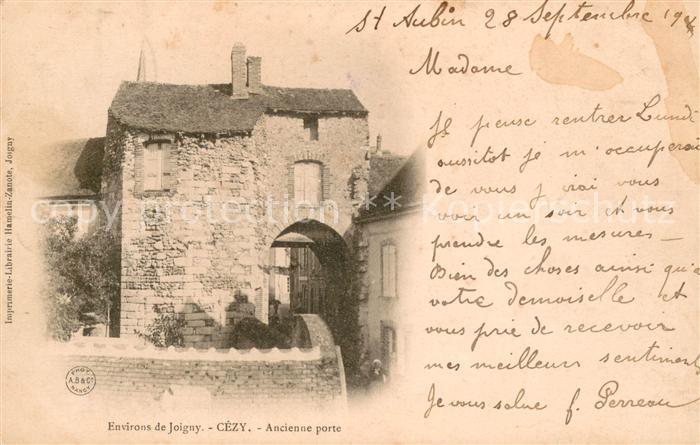 St Aubin 28 Septembre 190
Madame
Je pense rentrer Lundi
aussitot je m'occuperai
de vous j'irai vous
voir un soir et vous
prendre les mesures -
Bien des choses ainsi qu'a
votre demoiselle et
vous prie de recevoir
mes meilleurs sentiments
Je vous salue f. Perreau
Imprimerie-Librairie Hamelin-Zanote, Joigny
PHOT
A.B & Cº
NANCY
Environs de Joigny. - CÉZY. - Ancienne porte
copyright protection by ansichtskartenversand